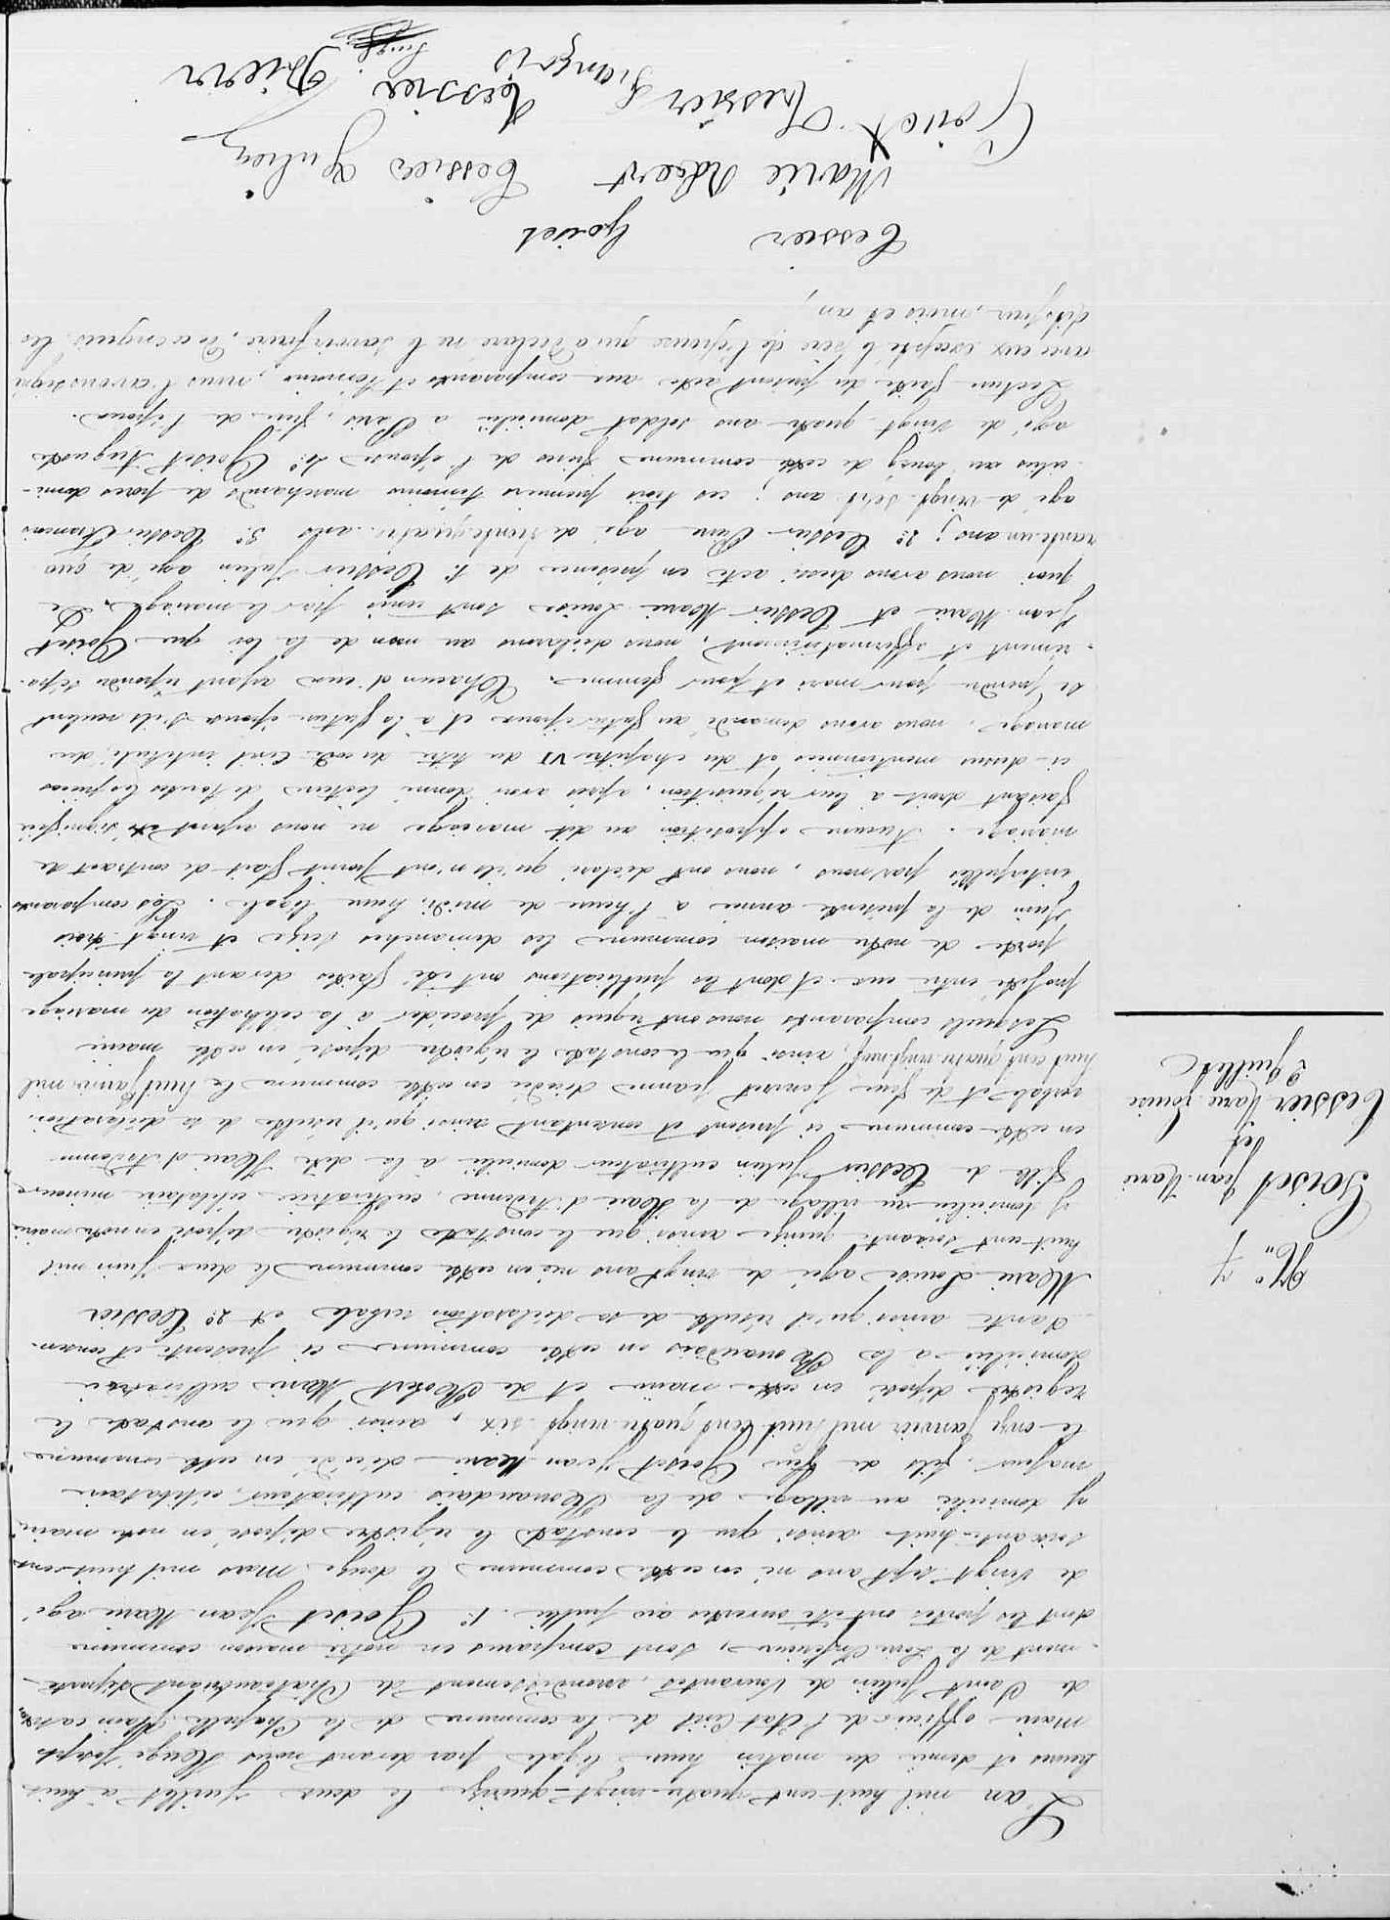 N° 7
Goiset Jean Marie
et
Tessier Marie Louise
2 Juillet
L'an mil huit cent quatre-vingt-quinze le deux Juillet à huit
heures et demie du matin heure légale par devant nous Joseph
Maire officier de l'Etat Civil de la commune de la Chapelle Glain canton
de Saint Julien de Vouvantes, arrondissement de Chateaubriant départe-
-ment de la Loire Inférieure, sont comparus en notre maison commune
dont les portes ont été ouvertes au public. 1° Goiset Jean Marie agé
de vingt sept ans né en cette commune le douze Mars mil huit cent
soixante-huit ainsi que le constate le registre déposé en notre mairie
y domicilié au village de la cultivateur, célibataire
majeur, fils de feu Goiset Jean Marie décédé en cette commune
le onze janvier mil huit cent quatre vingt six, ainsi que le constate le
registre déposé en cette mairie et de Marie cultivatrice
domiciliée à la en cette commune ci présente et consen-
-tante ainsi qu'il résulte de sa déclaration verbale et 2° Tessier
Marie Louise agée de vingt ans née en cette commune le deux Juin mil
huit cent soixante quinze ainsi que le constate le registre déposé en notre mairie
y domiciliée au village de la Haie d'Ardenne, cultivatrice célibataire mineure
fille de Tessier Julien cultivateur domicilié à la dite Haie d'Ardenne
en cette commune ci présent et consentant ainsi qu'il résulte de sa déclaration
verbale et de feue Jeanne décédée en cette commune le huit mil
huit cent quatre vingt ainsi que le constate le registre déposé en cette mairie
Lesquels comparants nous ont requis de procéder à la célébration du mariage
projeté entre eux et dont les publications ont été faites devant la principale
porte de notre maison commune les dimanches seize et vingt trois
Juin de la présente année à l'heure de midi, heure légale. Les comparants
interpellés par nous, nous ont déclaré qu'ils n'ont point fait de contrat de
mariage. Aucune opposition au dit mariage ne nous ayant été signifiée
faisant droit à leur réquisition, après avoir donné lecture de toutes les pièces
ci-dessus mentionnées et du chapitre VI du titre du code Civil intitulé du
mariage, nous avons demandé au futur époux et à la future épouse s'ils veulent
se prendre pour mari et pour femme. Chacun d'eux ayant répondu sépa-
-rément et affirmativement, nous déclarons au nom de la loi que Goiset
Jean Marie et Tessier Marie Louise sont unis par le mariage. De
quoi nous avons dressé acte en présence de 1° Tessier Julien agé de qua
rante un ans; 2° Tessier Pierre agé de trente quatre ans 3° Tessier François
agé de vingt sept ans; ces trois premiers témoins marchands de porcs domi-
-ciliés au bourg de cette commune frères de l'épouse 4° Goiset Auguste
agé de vingt quatre ans soldat domicilié à Paris, frère de l'époux.
Lecture faite du présent acte aux comparants et témoins, nous l'avons signé
avec eux excepté le père de l'épouse qui a déclaré ne le savoir faire, de ce enquis les
dits jour, mois et an,
Tessier Goiset
Marie Tessier Julien
Goiset Tessier François Tessier Pierre